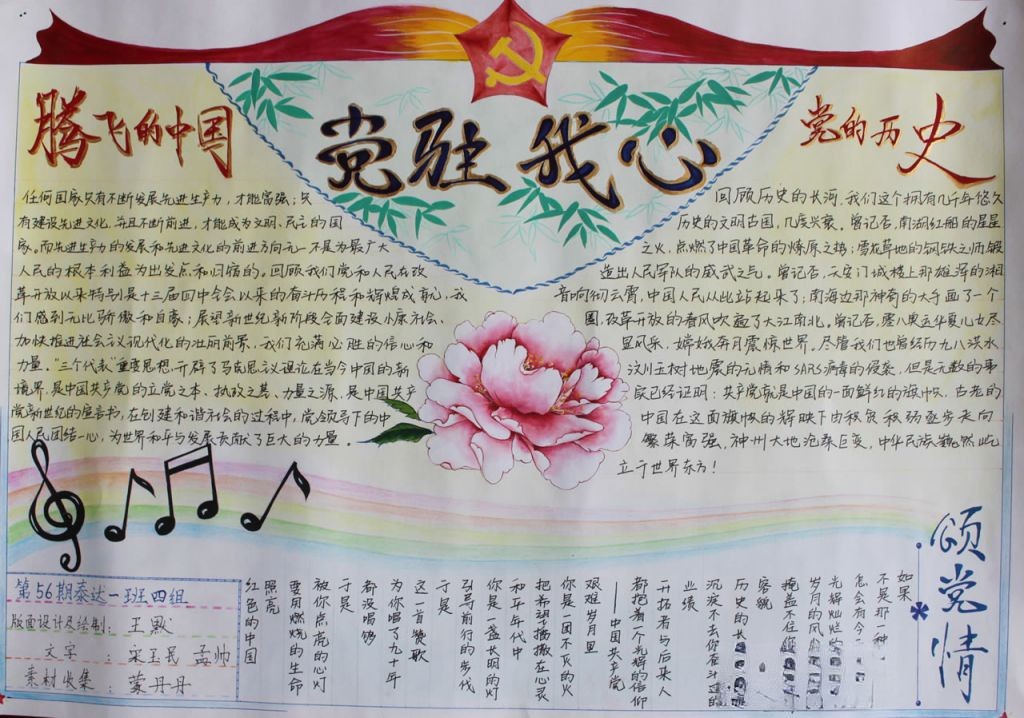 党驻我心
腾飞的中国
任何国家只有不断发展先进生产力，才能富强；只
有建设先进文化，并且不断前进，才能成为文明、民主的国
家。而先进生产力的发展和先进文化的前进方向无一不是为最广大
人民的根本利益为出发点和归宿的。回顾我们党和人民在改
革开放以来特别是十三届四中全会以来的奋斗历程和辉煌成就，我
们感到无比骄傲和自豪；展望新世纪新阶段全面建设小康社会、
加快推进社会主义现代化的壮丽前景，我们充满必胜的信心和
力量。“三个代表”重要思想，开辟了马克思主义理论在当今中国的新
境界，是中国共产党的立党之本、执政之基、力量之源，是中国共产
党新世纪的宣言书，在创建和谐社会的过程中，党领导下的中
国人民团结一心，为世界和平与发展贡献了巨大的力量。
党的历史
回顾历史的长河，我们这个拥有几千年悠久
历史的文明古国，几度兴衰。曾记否，南湖红船的星星
之火，点燃了中国革命的燎原之势；雪龙草地的钢铁之师锻
造出人民军队的威武之气。曾记否，天安门城楼上那雄浑的湘
音响彻云霄，中国人民从此站起来了；南海边那神奇的大手画了一个
圈，改革开放的春风吹遍了大江南北。曾记否，神八奥运华夏儿女尽
显风采，嫦娥奔月震惊世界。尽管我们也曾经历九八洪水
汶川玉树地震的无情和SARS病毒的侵袭，但是无数的事
实已经证明：共产党就是中国的一面鲜红的旗帜，古老的
中国在这面旗帜的辉映下由积贫积弱逐步走向
繁荣富强，神州大地沧桑巨变，中华民族巍然屹
立于世界东方！
颂党情
如果
不是那一种
怎会有今
光辉灿烂的
岁月的风
掩盖不住你
容貌
历史的长
沉淀不去你奋斗过的
业绩
开拓者与后来人
都抱着一个光辉的信仰
——中国共产党
艰难岁月里
你是一团不灭的火
把希望播撒在心灵
和平年代中
你是一盏长明的灯
引导前行的步伐
于是
这一首赞歌
为你唱了九十年
都没唱够
于是
被你点亮的心灯
要用燃烧的生命
照亮
红色的中国
第56期泰达一班四组
版面设计及绘制：王默
文字：宋玉民 孟帅
素材收集：蒙丹丹